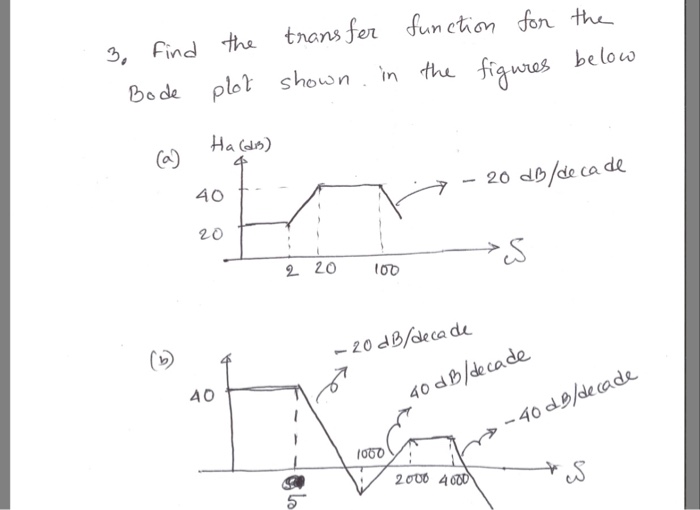 3. Find the transfer function for the
Bode plot shown in the figures below
(a)
Ha (dB)
40
20
2 20 100
- 20 dB/decade
S
(b)
40
- 20 dB/decade
40 dB/decade
- 40 dB/decade
1000
2000 4000
S
5